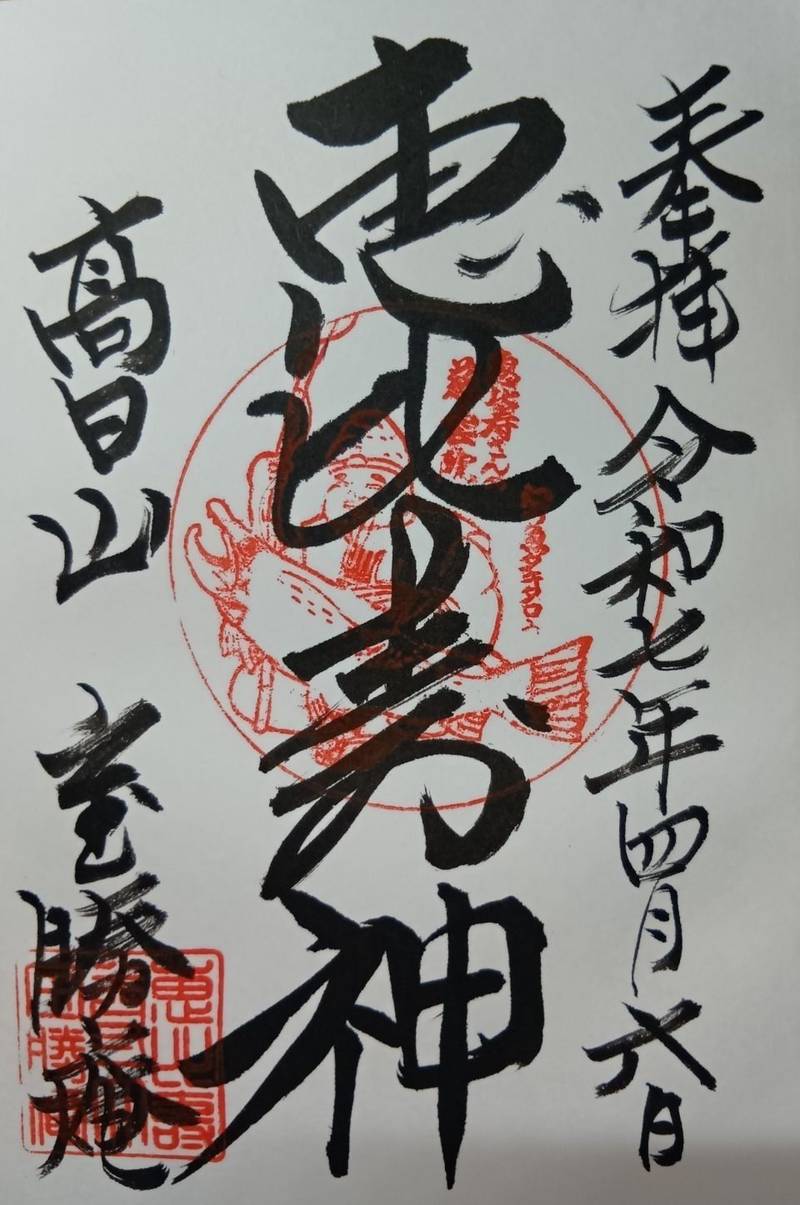 奉拝 令和七年四月六日
恵比寿神
高日山 宝勝庵